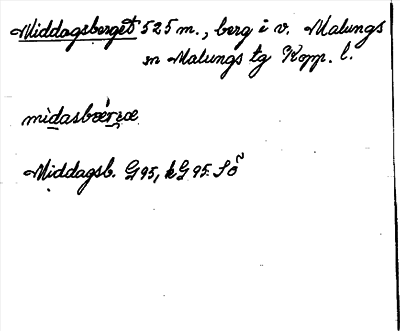 Middagsberget 525 m., berg i v. Malungs
sn Malungs tg Kopp. l.
mìdasbær̨æ
Middagsb. G95, kG95. Sö